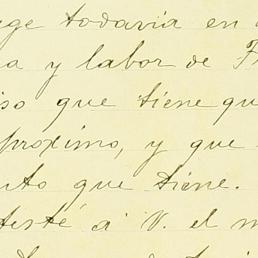 ge todavia en
a y labor de
so que tiene qu
próximo, y que
to que tiene.
testé á V. el m